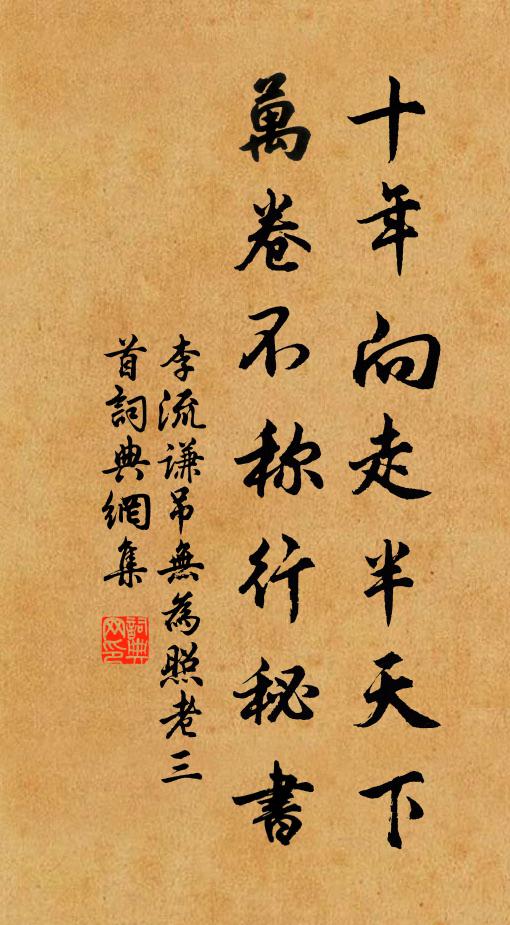 十年向走半天下
萬卷不称行秘書
李流谦吊無為照老三
首詞典網集
詞典網印